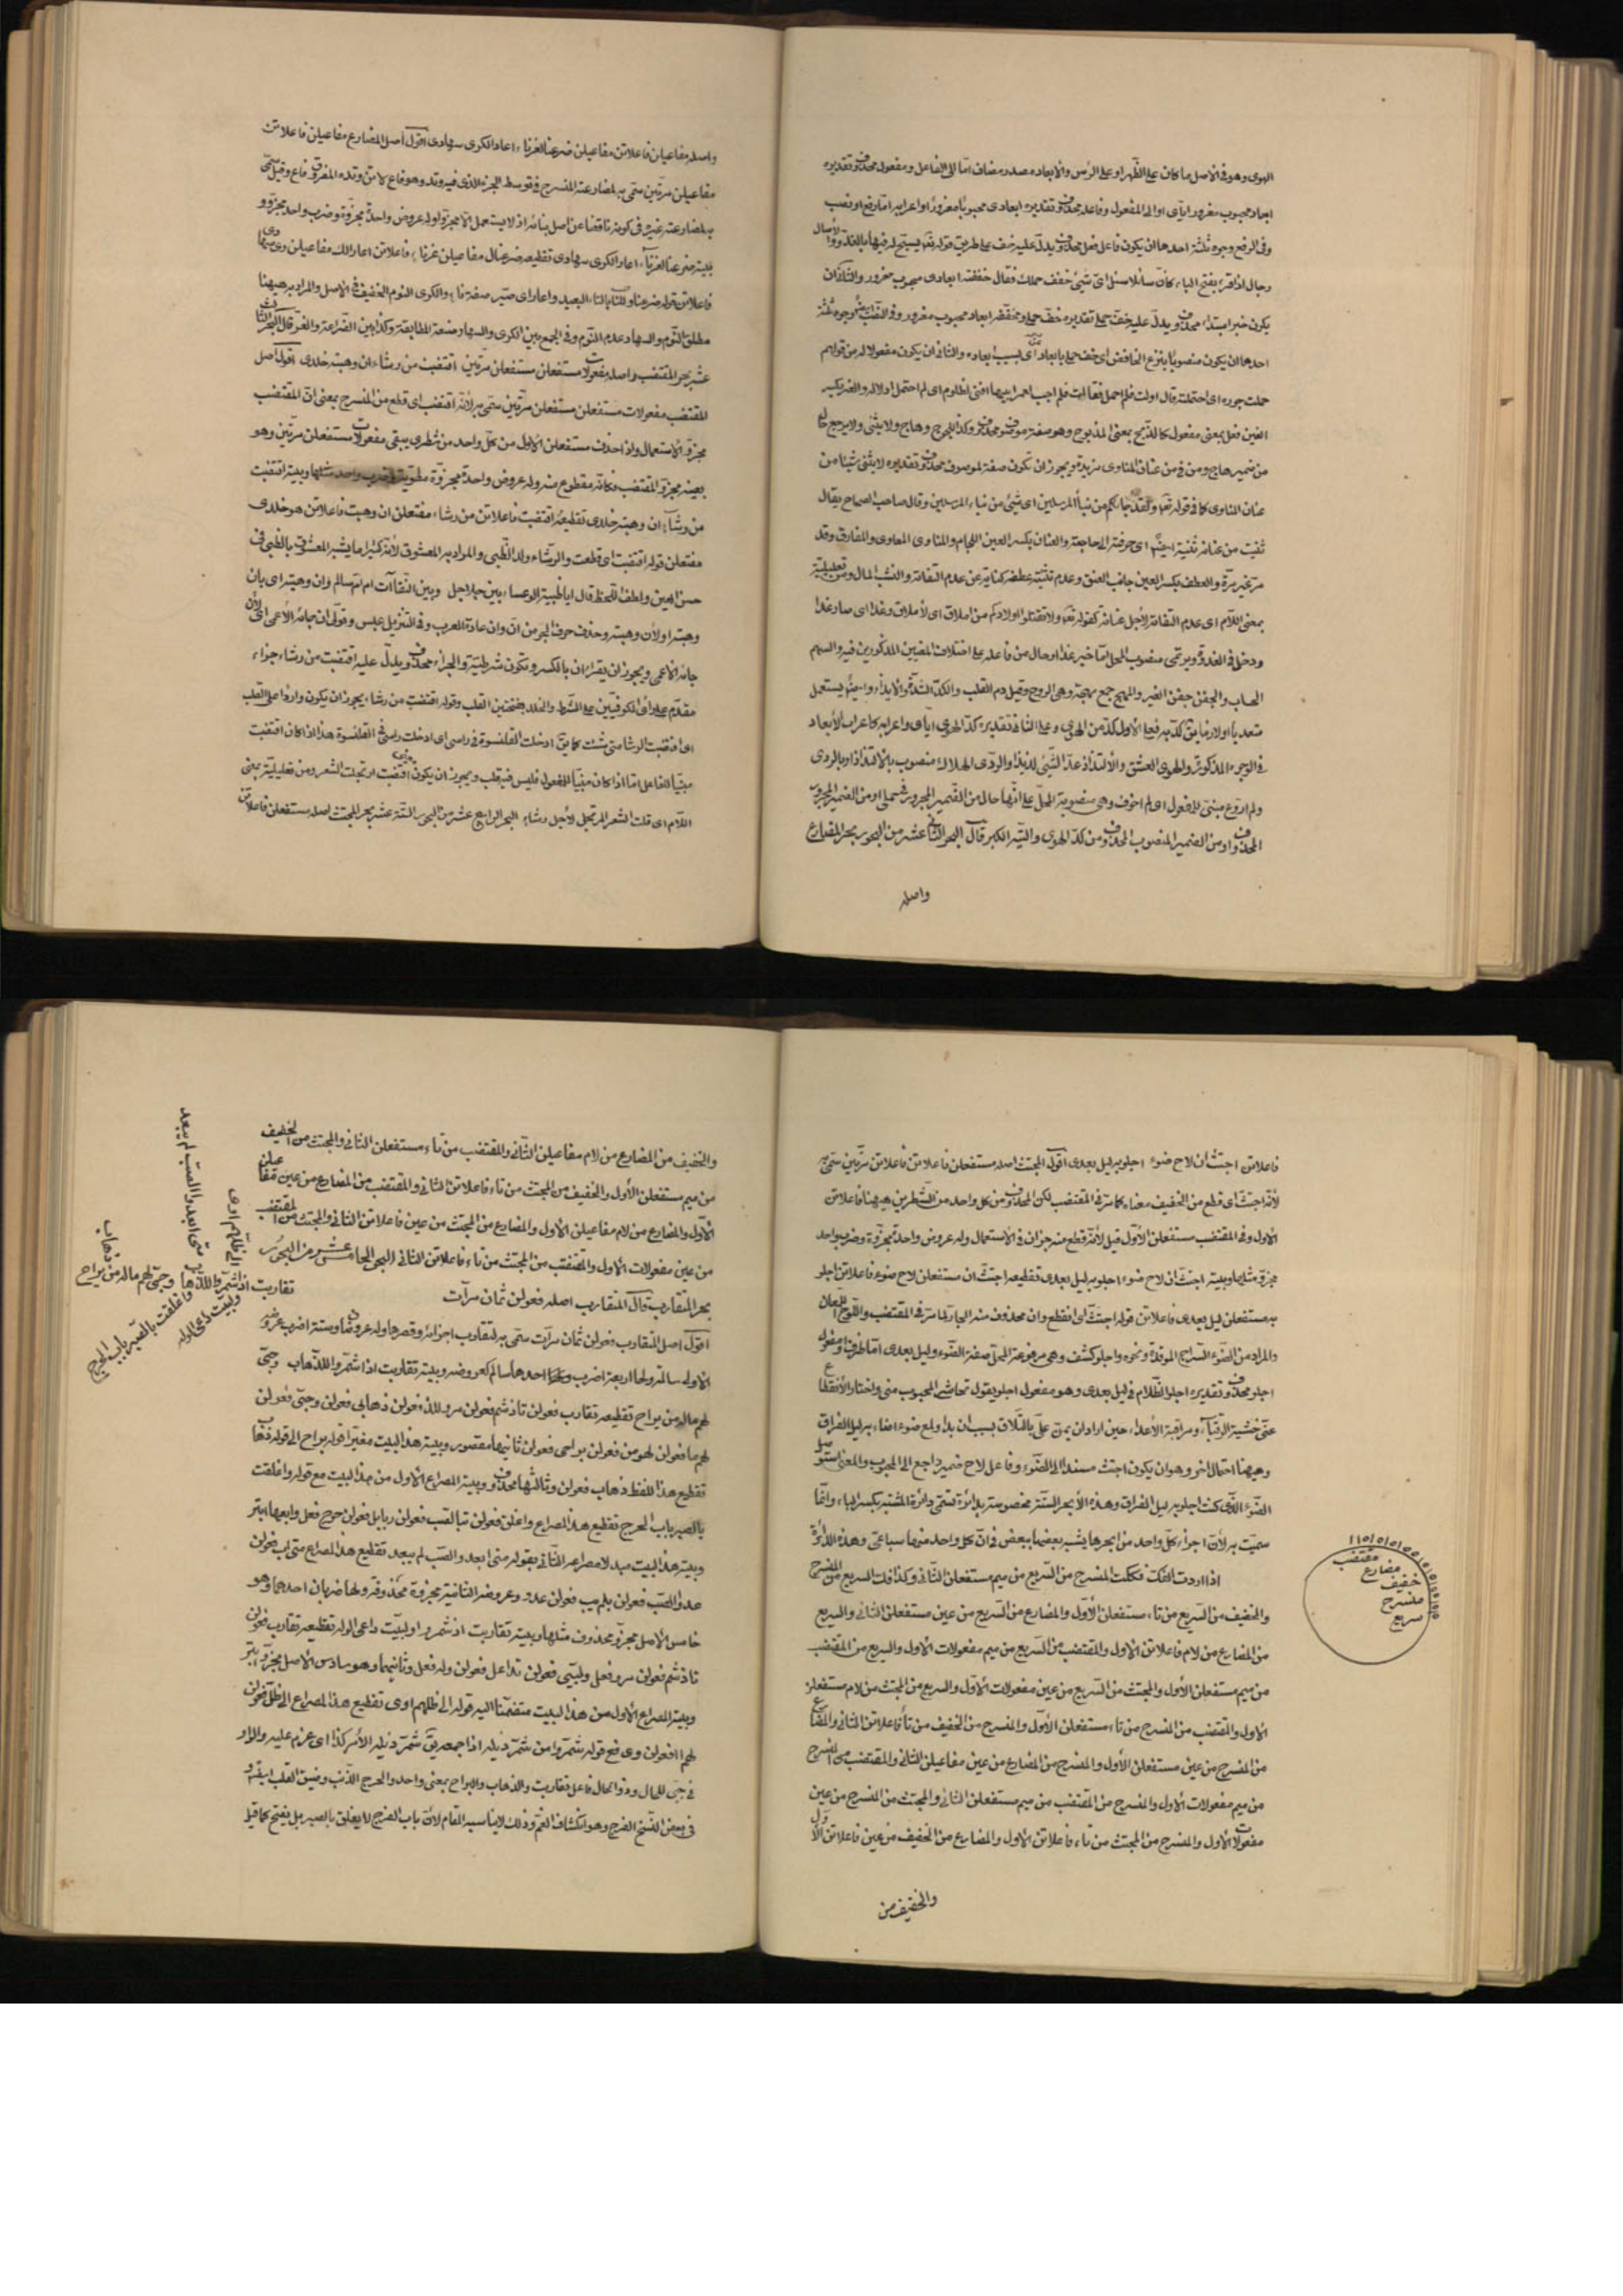 الهوى وهو في الاصل ما كان على الظهر او على الرأس والابعاد مصدر مضاف اما الى الفاعل ومفعوله محذوف وتقديره
ابعاد محبوب مغرور اياى او الى المفعول وفاعله محذوف وتقديره ابعادى محبوبا مغرورا واعرابه اما رفع او نصب
وفى الرفع وجوه ثلثة احدها ان يكون فاعل فعل محذوف ويدل عليه خف على طريق قوله تعالى يسبح له فيها بالغدو والاصال
رجال اذا قرئ بفتح الباء كان سائلا سئل اى شئ خفف حملك فقال خففه ابعادى محبوب مغرور والثانى ان
يكون خبر مبتدأ محذوف ويدل عليه خف حملى تقديره خف حملى ومخففه ابعاد محبوب مغرور وفى النصب ايضا وجوه ثلثة
احدها ان يكون منصوبا بنزع الخافض اى خف حملى بابعاد اى بسبب ابعاده والثانى ان يكون مفعولا له من قولهم
حملت جوره اى احتملته قال اولت فلم احمل فقالت فلم اجب
الغين فعل بمعنى مفعول كالذبح بمعنى المذبوح وهو صفة موصوف محذوف وكذا لمجرج وهاج ولا يثنى ولا يرجع حال
من ضمير هاج ومن فى من عنان المناوى مزيدة ويجوز ان تكون صفة لموصوف محذوف وتقديره لا يثنى شيئا من
عنان المناوى كما فى قوله تعالى ولقد جاءكم من نبأ المرسلين اى شئ من نباء المرسلين وقال صاحب الصحاح يقال
ثنيت من عنانه ثنية ايضا اى صرفته الى حاجته والعنان بكسر العين اللجام والمناوى المعاوى والمفارق وقد
مر غير مرة والعطف بكسر العين جانب العنق وعدم تثنية عطفه كناية عن عدم التفاته والنشب المال ومن تعليلية
بمعنى اللام اى عدم التفاته لاجل عنانه كقوله تعالى ولا تقتلوا اولادكم من املاق اى لاملاق وغدا اى صار غدا
ودخل فى الغدو ويرتمى منصوب المحل اما خبر غدا او حال من فاعله على اختلاف المعنيين المذكورين فيه والسهم
الحساب والجفن جفن العين والمهج جمع مهجة وهى الروح وقيل دم القلب والكد الشدة والايذاء وايضا يستعمل
متعديا او لا زما يق كد به فعلى الاول كد من الهوى وعلى الثانى تقديره كد الهوى اياى واعرابه كاعراب الابعاد
فى الوجوه المذكورة والهوى العشق والالتذاذ عد الشئ لذيذا والردى الهلاك منصوب بالالتذاذ او بالردى
ولم اروع مبنى للمفعول اى لم اخوف وهى منصوبة المحل على انها حال من الضمير المجرور فى حملى او من الضمير المجرور
المحذوف او من الضمير المنصوب المحذوف ومن كد الهوى والتيه الكبر قال البحر الثانى عشر من البحور بحر المضارع
واصله
واصله مفاعيلن فاعلاتن مفاعيلن ضرعنا لغرناء اعاد الكرى سهادى اقول اصل المضارع مفاعيلن فاعلاتن
مفاعيلن مرتين سمى به لمضارعته المنسرح فى توسط الجزء الذى فيه وتد وهو فاع لاتن وتده المفروق فاع وقيل سمى
به لمضارعته غيره فى كونه ناقصا عن اصل بنائه اذ لا يستعمل الا مجزوا وله عروض واحدة مجزوة وضرب واحد مجزو
بيته ضرعنا لغرناء اعاد الكرى سهادى تقطيعه ضرعنال مفاعيلن غرناء فاعلاتن اعاد الك مفاعيلن رى سهادى
فاعلاتن قوله ضرعنا والثاء البعيد واعاد اى صير صفة ناء والكرى النوم الخفيف فى الاصل والمراد به ههنا
مطلق النوم والسهاد عدم النوم وفى الجمع بين الكرى والسهاد صنعة المطابقة وكذا بين الضراعة والغر قال البحر الثالث
عشر بحر المقتضب واصله مفعولات مستفعلن مستفعلن مرتين اقتضبت من رشاء ان وهبته خلدى اقول اصل
المقتضب مفعولات مستفعلن مستفعلن مرتين سمى به لانه اقتضب اى قطع من المنسرح بمعنى ان المقتضب
مجزو الاستعمال واذا حذف مستفعلن الاول من كل واحد من شطرى يبقى مفعولات مستفعلن مرتين وهو
بعينه مجزو المقتضب فكانه مقطوع منه وله عروض واحدة مجزوة مطوية وضرب واحد مثلها وبيته اقتضبت
من رشاء ان وهبته خلدى تقطيعه اقتضبت فاعلاتن من رشاء مفتعلن ان وهبت فاعلاتن هو خلدى
مفتعلن قوله اقتضبت اى قطعت والرشاء ولد الظبى والمراد به المعشوق لانه كثيرا ما يشبه المعشوق بالظبى فى
حسن العين ولطف اللحظ قال اياظبية الوعساء بين جلاجل وبين النقاآنت ام ام سالم وان وهبته اى بان
وهبته او لان وهبته وحذف حرف الجر من ان وان عادة العرب وفى التنزيل عبس وتولى ان جاءه الاعمى اى لان
جاءه الاعمى ويجوز ان يقرأ ان بالكسر وتكون شرطية والجزاء محذوف ويدل عليه اقتضبت من رشاء جزاء
مقدم على رأى الكوفيين على الشرط والخلد بفتحتين القلب وقوله اقتضبت من رشاء يجوز ان يكون واردا على القلب
اى اقتضبت الرشا منى شئت كما يق ادخلت القلنسوة فى راسى اى ادخلت راسى فى القلنسوة هذا اذا كان اقتضبت
مبنيا للفاعل اما اذا كان مبنيا للمفعول فليس فيه قلب ويجوز ان يكون اقتضبت ارتجلت الشعر ومن تعليلية بمعنى
اللام اى قلت الشعر المرتجل لاجل رشاء البحر الرابع عشر من البحور الستة عشر بحر المجتث اصله مستفعلن فاعلاتن
فاعلاتن اجتث ان لاح ضوء اجلو به ليل بعدى اقول المجتث اصله مستفعلن فاعلاتن فاعلاتن مرتين سمى به
لانه اجتث اى قطع من الخفيف معناه كما مر فى المقتضب لكن المحذوف من كل واحد من الشطرين ههنا فاعلاتن
الاول وفى المقتضب مستفعلن الاول قيل لانه قطع منه جزان فى الاستعمال وله عروض واحدة مجزوة وضرب واحد
مجزو مثلها وبيته اجتث ان لاح ضوء اجلو به ليل بعدى تقطيعه اجتث ان مستفعلن لاح ضوء فاعلاتن اجلو
به مستفعلن ليل بعدى فاعلاتن قوله اجتث اى انقطع وان محذوف منه الجار لما مر فى المقتضب واللوح اللمعان
والمراد من الضوء السراج الموقدة ونحوه واجلو كشف وهى مرفوعة المحل صفة الضوء وليل بعدى اما ظرف او مفعول
اجلو محذوف وتقديره اجلو الظلام فى ليل بعدى وهو مفعول اجلو يقول تحاشى المحبوب منى واختار الانقطاع
عنى خشية الرقباء ومراقبة الاعداء حين اراد ان يمن على بالتلاق بسبب ان بدا ولمع ضوء اضاء به ليل الفراق
وههنا احتمال اخر وهو ان يكون اجتث مسندا الى الضوء وفاعل لاح ضمير راجع الى المحبوب والمعنى استوصل
الضوء الذى كنت اجلو به ليل الفراق وهذه الابحر الستة مخصوصة بدائرة تسمى دائرة المشتبه بكسر الباء وانما
سميت به لان اجزاء كل واحد من ابحرها يشبه بعضها ببعض فى ان كل واحد منها سباعى وهذه الدائرة
اذا اردت الفك فككت المنسرح من السريع من ميم مستفعلن الثانى وكذا فك السريع من المنسرح
والخفيف من السريع من تاء مستفعلن الاول والمضارع من السريع من عين مستفعلن الثانى والسريع
من المضارع من لام فاعلاتن الاول والمقتضب من السريع من ميم مفعولات الاول والسريع من المقتضب
من ميم مستفعلن الاول والمجتث من السريع من عين مفعولات الاول والسريع من المجتث من لام مستفعلن
الاول والمقتضب من المنسرح من تاء مستفعلن الاول والمنسرح من الخفيف من تاء فاعلاتن الثانى والمضارع
من المنسرح من عين مستفعلن الاول والمنسرح من المضارع من عين مفاعيلن الثانى والمقتضب من المنسرح
من ميم مفعولات الاول والمنسرح من المقتضب من ميم مستفعلن الثانى والمجتث من المنسرح من عين
مفعولات الاول والمنسرح من المجتث من تاء فاعلاتن الاول والمضارع من الخفيف من عين فاعلاتن الاول
والخفيف من
مقتضب
مضارع
خفيف
منسرح
سريع
والخفيف من المضارع من لام مفاعيلن الثانى والمقتضب من تاء مستفعلن الثانى والمجتث من الخفيف
من ميم مستفعلن الاول والخفيف من المجتث من تاء فاعلاتن الثانى والمقتضب من المضارع من عين مفاعيلن
الاول والمضارع من لام مفاعيلن الاول والمضارع من المجتث من عين فاعلاتن الثانى والمجتث من المقتضب
من عين مفعولات الاول والمقتضب من المجتث من تاء فاعلاتن الثانى البحر الخامس عشر من البحور
بحر المتقارب قال المتقارب اصله فعولن ثمان مرات
اقول اصل المتقارب فعولن ثمان مرات سمى به لتقارب اجزائه وقصرها وله عروضان وستة اضرب عروضه
الاولى سالمة ولها اربعة اضرب احدها سالم كعروضه وبيته تقاربت اذا شمروا للذهاب وجنى
لهم ماله من براح تقطيعه تقارب فعولن تاذشم فعولن مروللذ فعولن ذهابى فعولن وجنى فعولن
لهم ما فعولن لهو من فعولن براحى فعولن ثانيها مقصور وبيته هذا البيت مغيرا قوله براح الى قوله ذهاب
تقطيع هذا اللفظ ذهاب فعولن وثالثها محذوف وبيته المصراع الاول من هذا البيت مع قوله واغلقت
بالصبر باب الحرج تقطيع هذا المصراع واغلق فعولن تبالصب فعولن ربابل فعولن حرج فعل ورابعها ابتر
وبيته هذا البيت مبدلا مصراعه الثانى بقوله متى ابعدوا الصب لم يبعد تقطيع هذا المصراع متى اب فعولن
عدوالصب فعولن بلم يب فعولن عدو وعروضه الثانية مجزوة محذوفة ولها ضربان احدهما وهو
خامس الاصل مجزو محذوف مثلها وبيته تقاربت اذ شمروا ولبيت داعى الوله تقطيعه تقارب فعولن
تاذشم فعولن مرو فعل ولبيى فعولن تداعل فعولن وله فعل وثانيهما وهو سادس الاصل مجزو ابتر
وبيته المصراع الاول من هذا البيت متضمنا اليه قوله الى ظلهم اوى تقطيع هذا المصراع الى ظل فعولن
لهم اا فعولن وى فع قوله شمروا من شمر ذيله اذا جمعه يق شمر ذيله لامر كذا اى عزم عليه والواو
فى جنى للحال وذو الحال فاعل تقاربت والذهاب والبراح بمعنى واحد والحرج الذنب وضيق القلب ايضا و
فى بعض النسخ الفرج وهو انكشاف الغم وذلك لا يناسب المقام لان باب الفرج لا يغلق بالصبر بل يفتح كما قيل
تقاربت اذ شمروا للذهاب وجنى لهم ماله من براح
ذهاب
واغلقت بالصبر باب الحرج
متى ابعدوا الصب لم يبعد
ولبيت داعى الوله
الى ظلهم اوى